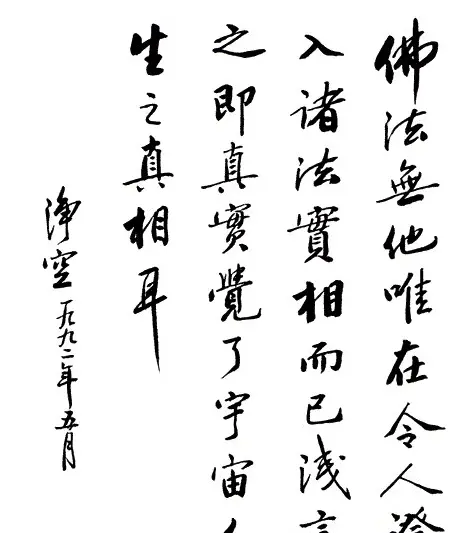 佛法無他唯在令人證
入諸法實相而已淺言
之即真實覺了宇宙人
生之真相耳
淨空一九九二年五月